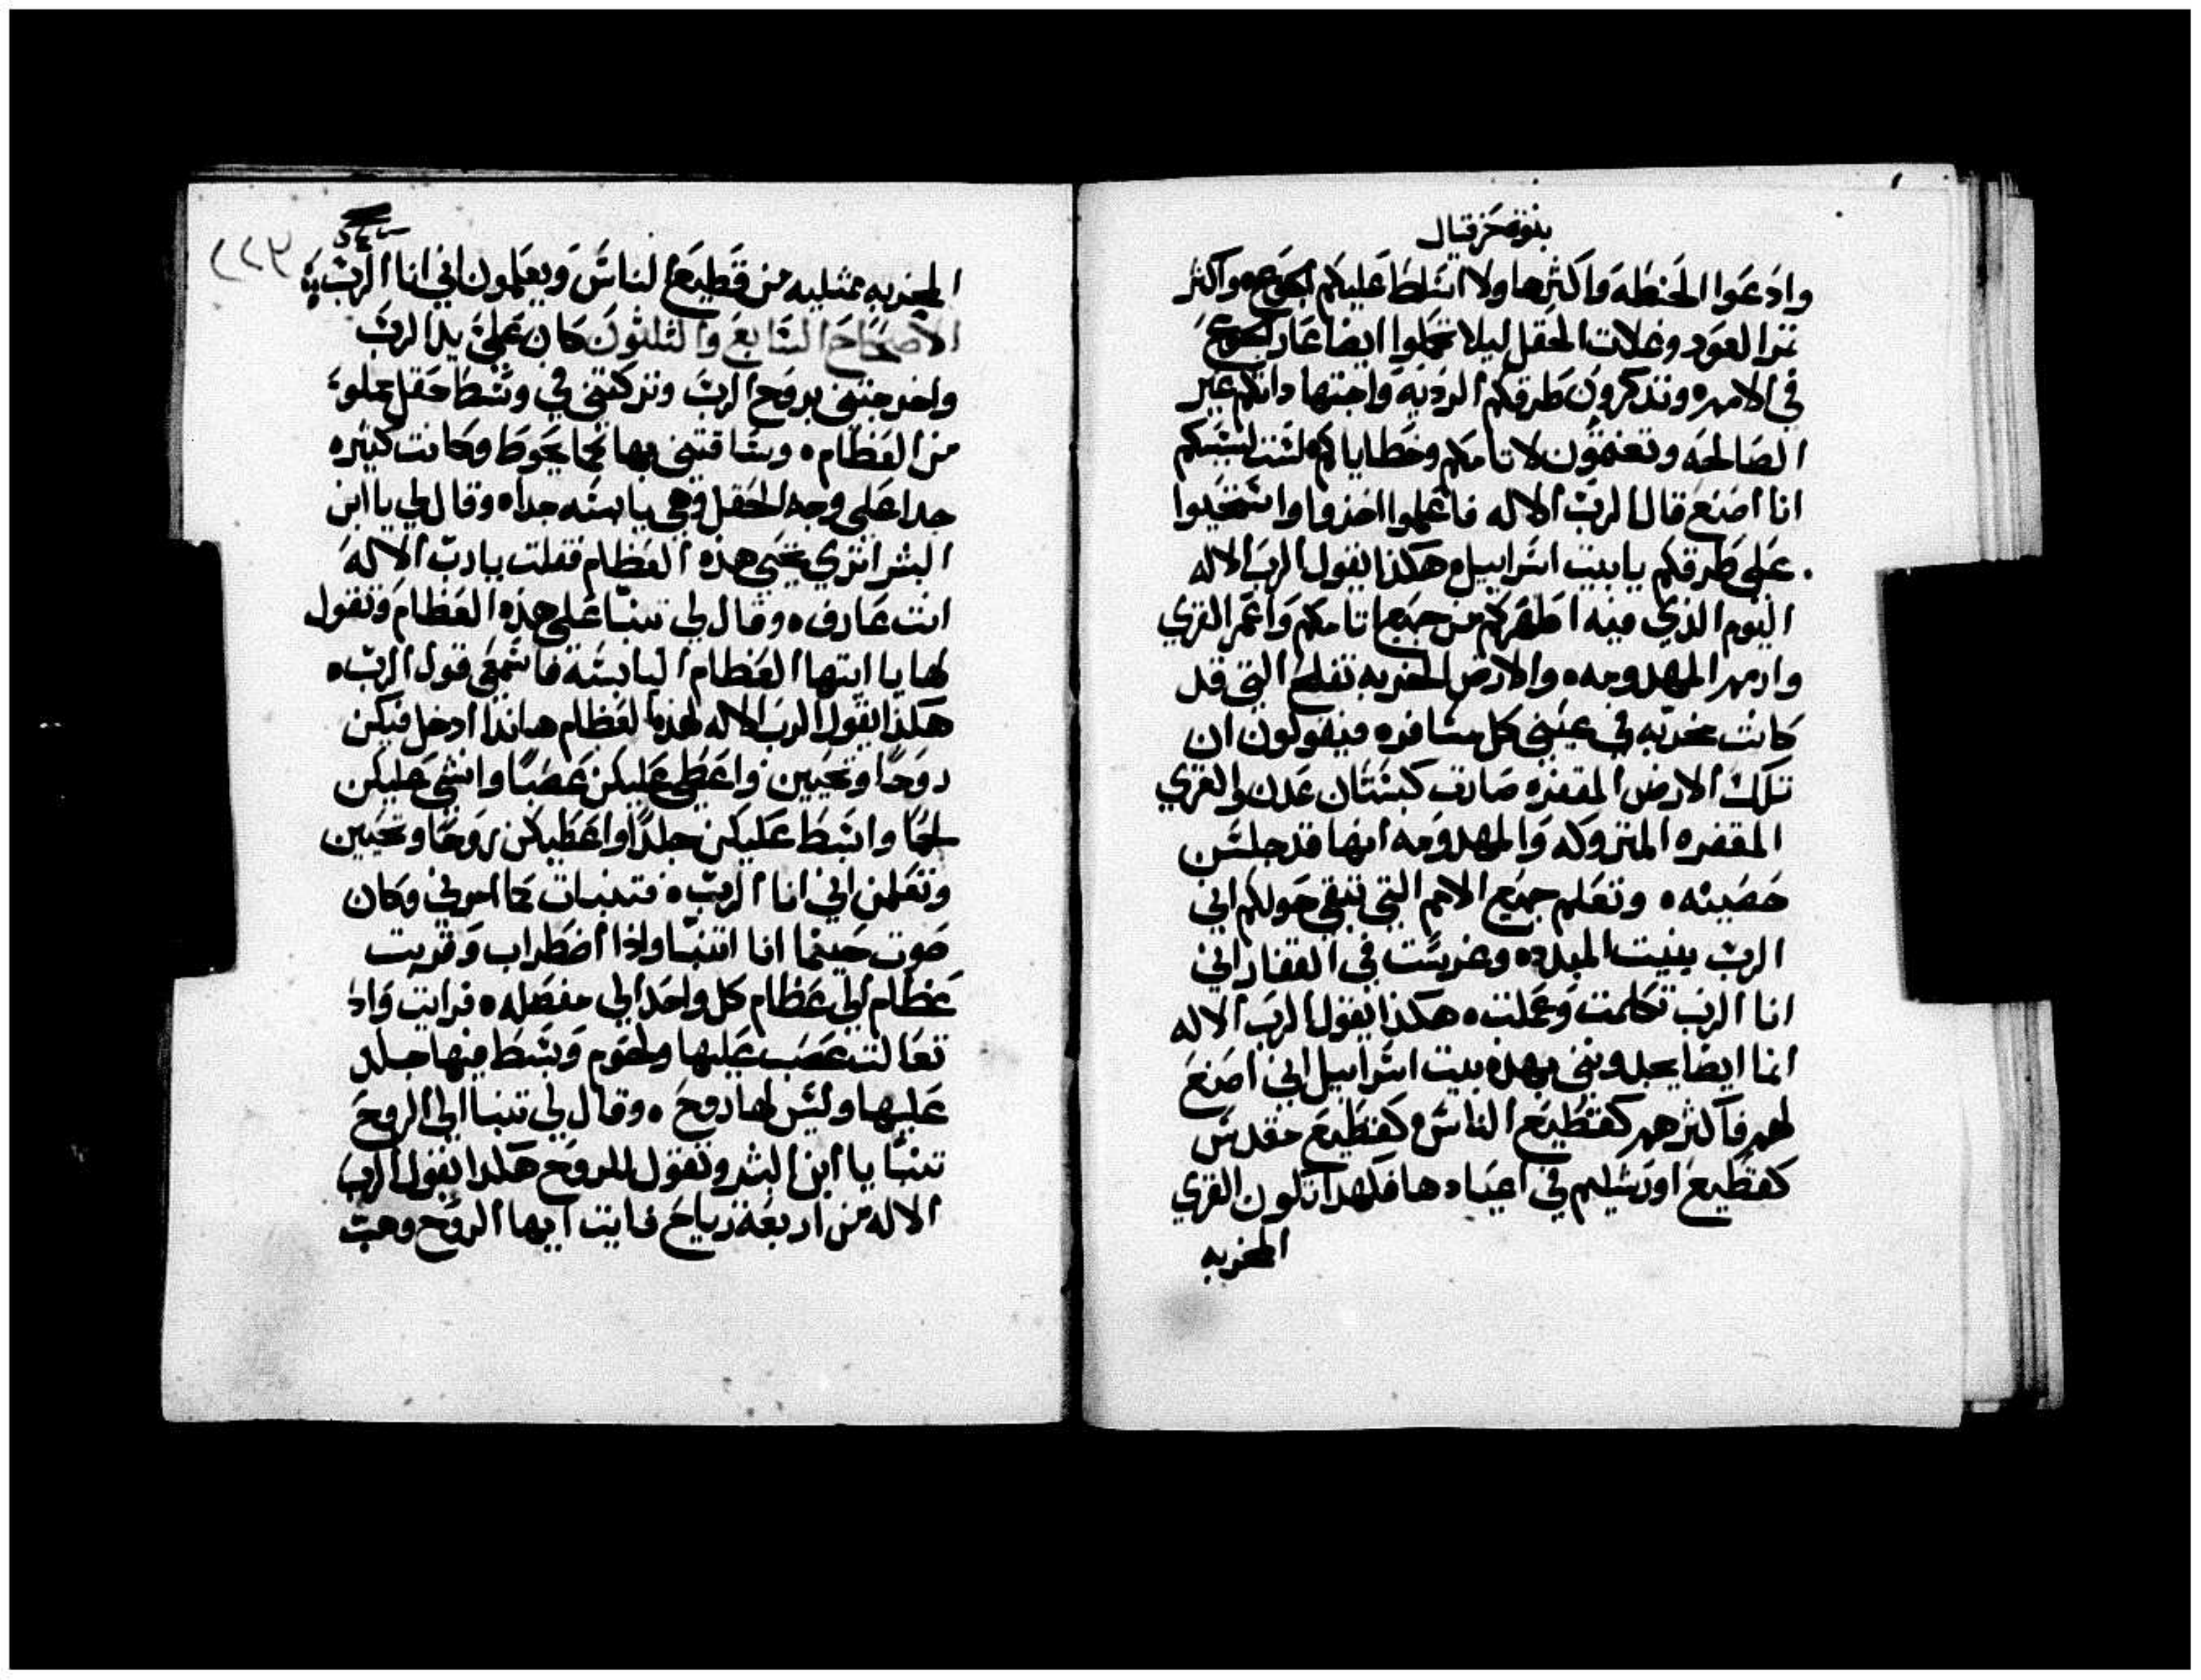 بنوة حزقيال
وادعوا الحنطه واكثرها ولا اسلط عليكم الجوع واكثر
ثمر العود وغلات الحقل ليلا تحملوا ايضا عار الجوع
في الامم وتذكرون طرقكم الرديه واجتهاداتكم غير
الصالحه وتغتمون لاتامكم وخطاياكم لست لسببكم
انا اصنع قال الرب الاله فاعلموا اخزوا واستحيوا
على طرقكم يا بيت اسراييل هكذا يقول الرب الاله
اليوم الذي فيه اطهركم من جميع اتامكم واعمر القري
وارمم المهدومه والارض المخربه تفلح التي قد
كانت مخربه في عيني كل مسافر فيقولون ان
تلك الارض المقفره صارت كبستان عدن والقري
المقفره المتروكه والمهدومه انها قد جلسن
حصينه وتعلم جميع الامم التي تبقي حولكم اني
الرب بنيت المبدده وغرست في القفار اني
انا الرب تكلمت وعملت هكذا يقول الرب الاله
انما ايضا يجدونني بهذه بيت اسراييل اني اصنع
لهم فاكثرهم كقطيع الناس كقطيع مقدس
كقطيع اورشليم في اعيادها فلهذا تكون القري
المخربه
١١٧
المخربه ممتليه من قطيع الناس ويعلمون اني انا الرب
الاصحاح السابع والثلثون كان علي يد الرب
واخرجتني بروح الرب وتركتني في وسط حقل مملوء
من العظام وساقتني بها بما يحوط وكانت كثيره
جدا على وجه الحقل وهي يابسه جدا وقال لي يا ابن
البشر اتري تحيي هذه العظام فقلت يا رب الاله
انت عارف وقال لي تنبا على هذه العظام وتقول
لها يا ايتها العظام اليابسة فاسمعي قول الرب
هكذا يقول الرب الاله لهذه العظام هانذا ادخل فيكن
روحا وتحيين واعطي عليكن عصبا وانشي عليكن
لحما وابسط عليكن جلدا واعطيكن روحا وتحيين
وتعلمن اني انا الرب فتنبات كما امرني وكان
صوت حينما انا اتنبا واذا اضطراب وقربت
عظام الي عظام كل واحد الي مفصله فرايت واذا
تعالت عصب عليها ولحوم وبسط فيها جلد
عليها وليس لها روح وقال لي تنبا الي الروح
تنبا يا ابن البشر وتقول للروح هكذا يقول الرب
الاله من اربعة رياح فايت ايها الروح وهب